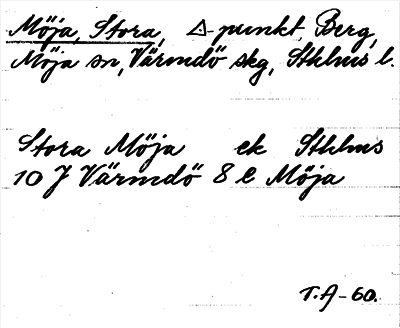 Möja, Stora, △-punkt, Berg,
Möja sn, Värmdö skg, Sthlms l.
Stora Möja ek Sthlms
10 J Värmdö 8 e Möja
T.A-60.